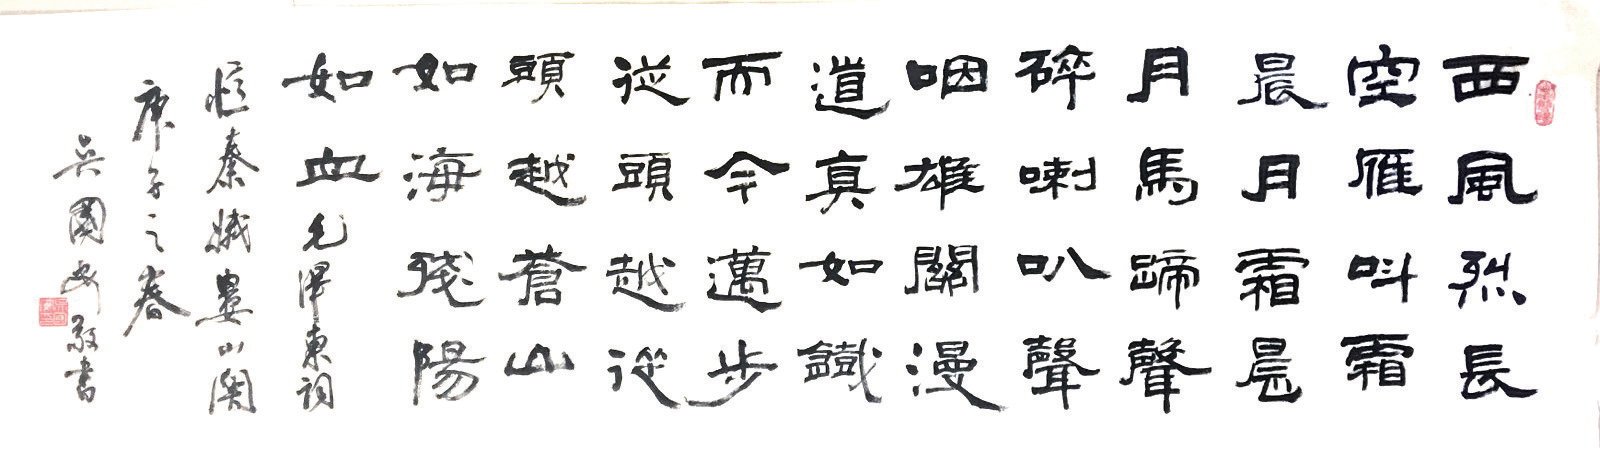 西風烈長
空雁呌霜
晨月霜晨
月馬蹄聲
碎喇叭聲
咽雄關漫
道真如鐵
而今邁步
從頭越從
頭越蒼山
如海殘陽
如血毛澤東詞
憶秦娥婁山關
庚子之春
吴國敬書